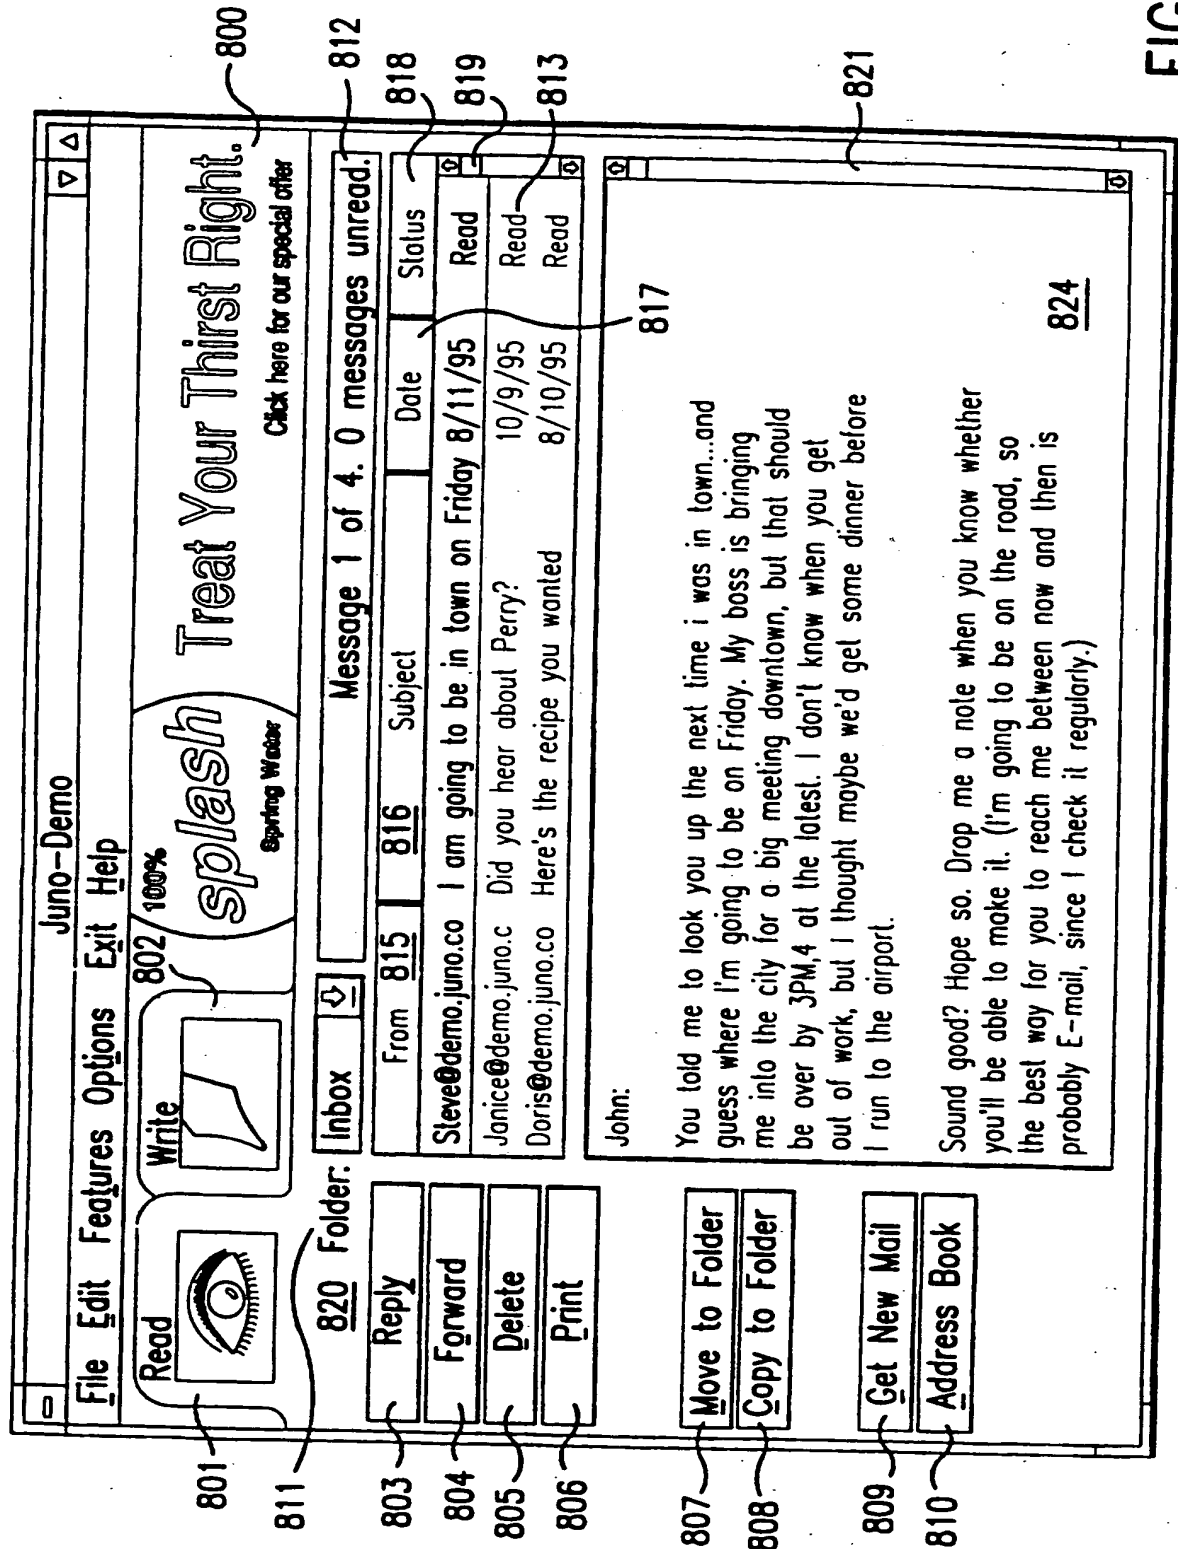 Juno-Demo
File Edit Features Options Exit Help
Read
Write
802
100%
splash
Spring Water
Treat Your Thirst Right.
Click here for our special offer
800
801
811
820 Folder: Inbox
Message 1 of 4. 0 messages unread.
812
From 815 816 Subject Date Status
818
Steve@demo.juno.co I am going to be in town on Friday 8/11/95 Read
819
Janice@demo.juno.c Did you hear about Perry? 10/9/95 Read
813
Doris@demo.juno.co Here's the recipe you wanted 8/10/95 Read
803 Reply
804 Forward
805 Delete
806 Print
817
821
John:
You told me to look you up the next time i was in town...and
guess where I'm going to be on Friday. My boss is bringing
me into the city for a big meeting downtown, but that should
be over by 3PM,4 at the latest. I don't know when you get
out of work, but I thought maybe we'd get some dinner before
I run to the airport.
Sound good? Hope so. Drop me a note when you know whether
you'll be able to make it. (I'm going to be on the road, so
the best way for you to reach me between now and then is
probably E-mail, since I check it regularly.)
824
807 Move to Folder
808 Copy to Folder
809 Get New Mail
810 Address Book